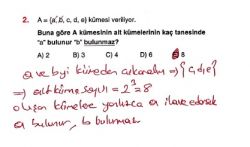 2. A = {a, b, c, d, e} kümesi veriliyor.
Buna göre A kümesinin alt kümelerinin kaç tanesinde
"a" bulunur "b" bulunmaz?
A) 2 B) 3 C) 4 D) 6 E) 8
a ve b yi kümeden çıkaralım ⇒ {c, d, e}
⇒ alt küme sayısı = 2³ = 8
oluşan kümelere yalnızca a ilave edersek
a bulunur, b bulunmaz